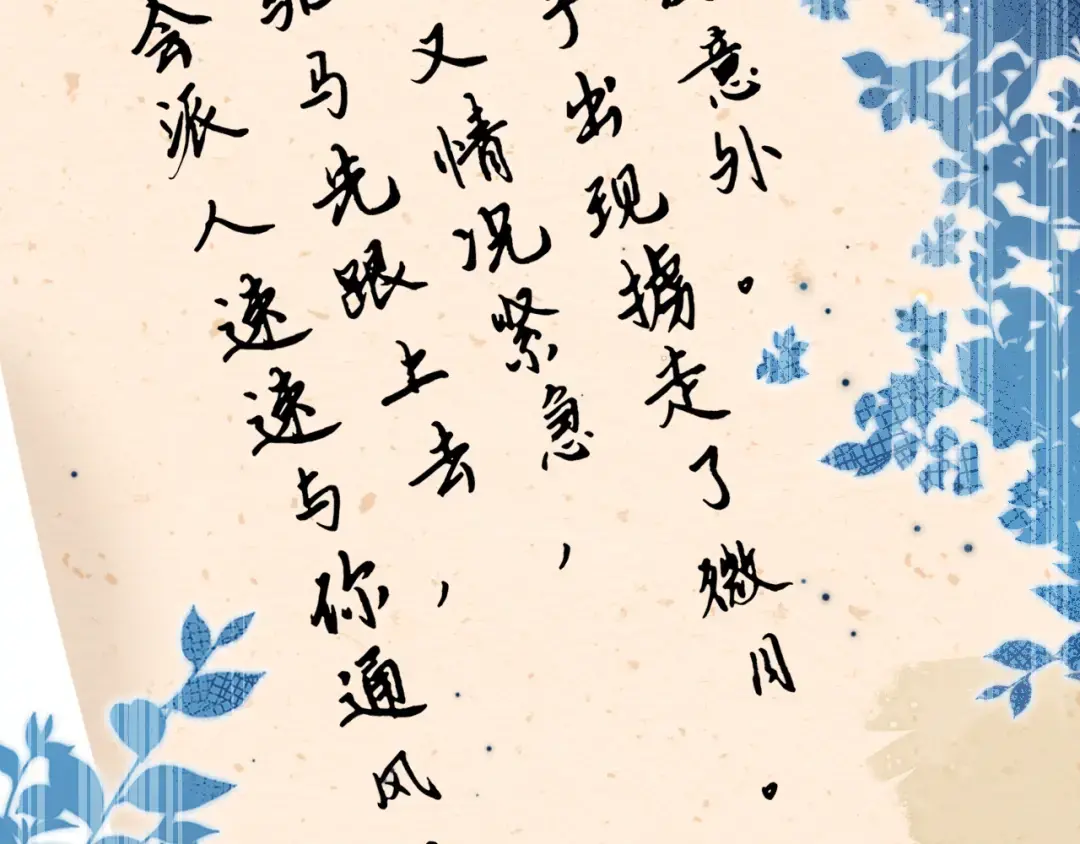 意外。
出现掳走了微月。
又情况紧急，
马先跟上去，
会派人速速与你通风